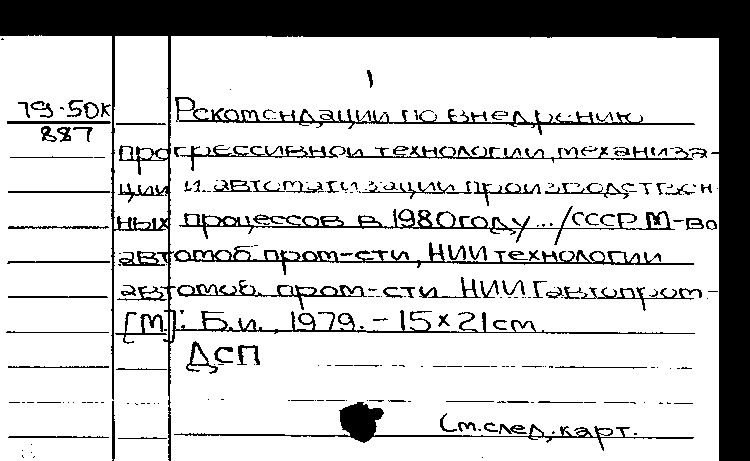 1
79-50к Рекомендации по внедрению
887
прогрессивной технологии, механиза-
ции и автоматизации производствен
ных процессов в 1980 году.../СССР М-во
автомоб. пром-сти, НИИ технологии
автомоб. пром-сти НИИТавтопром-
[М]: Б.и., 1979. - 15×21 см.
ДСП
См. след. карт.